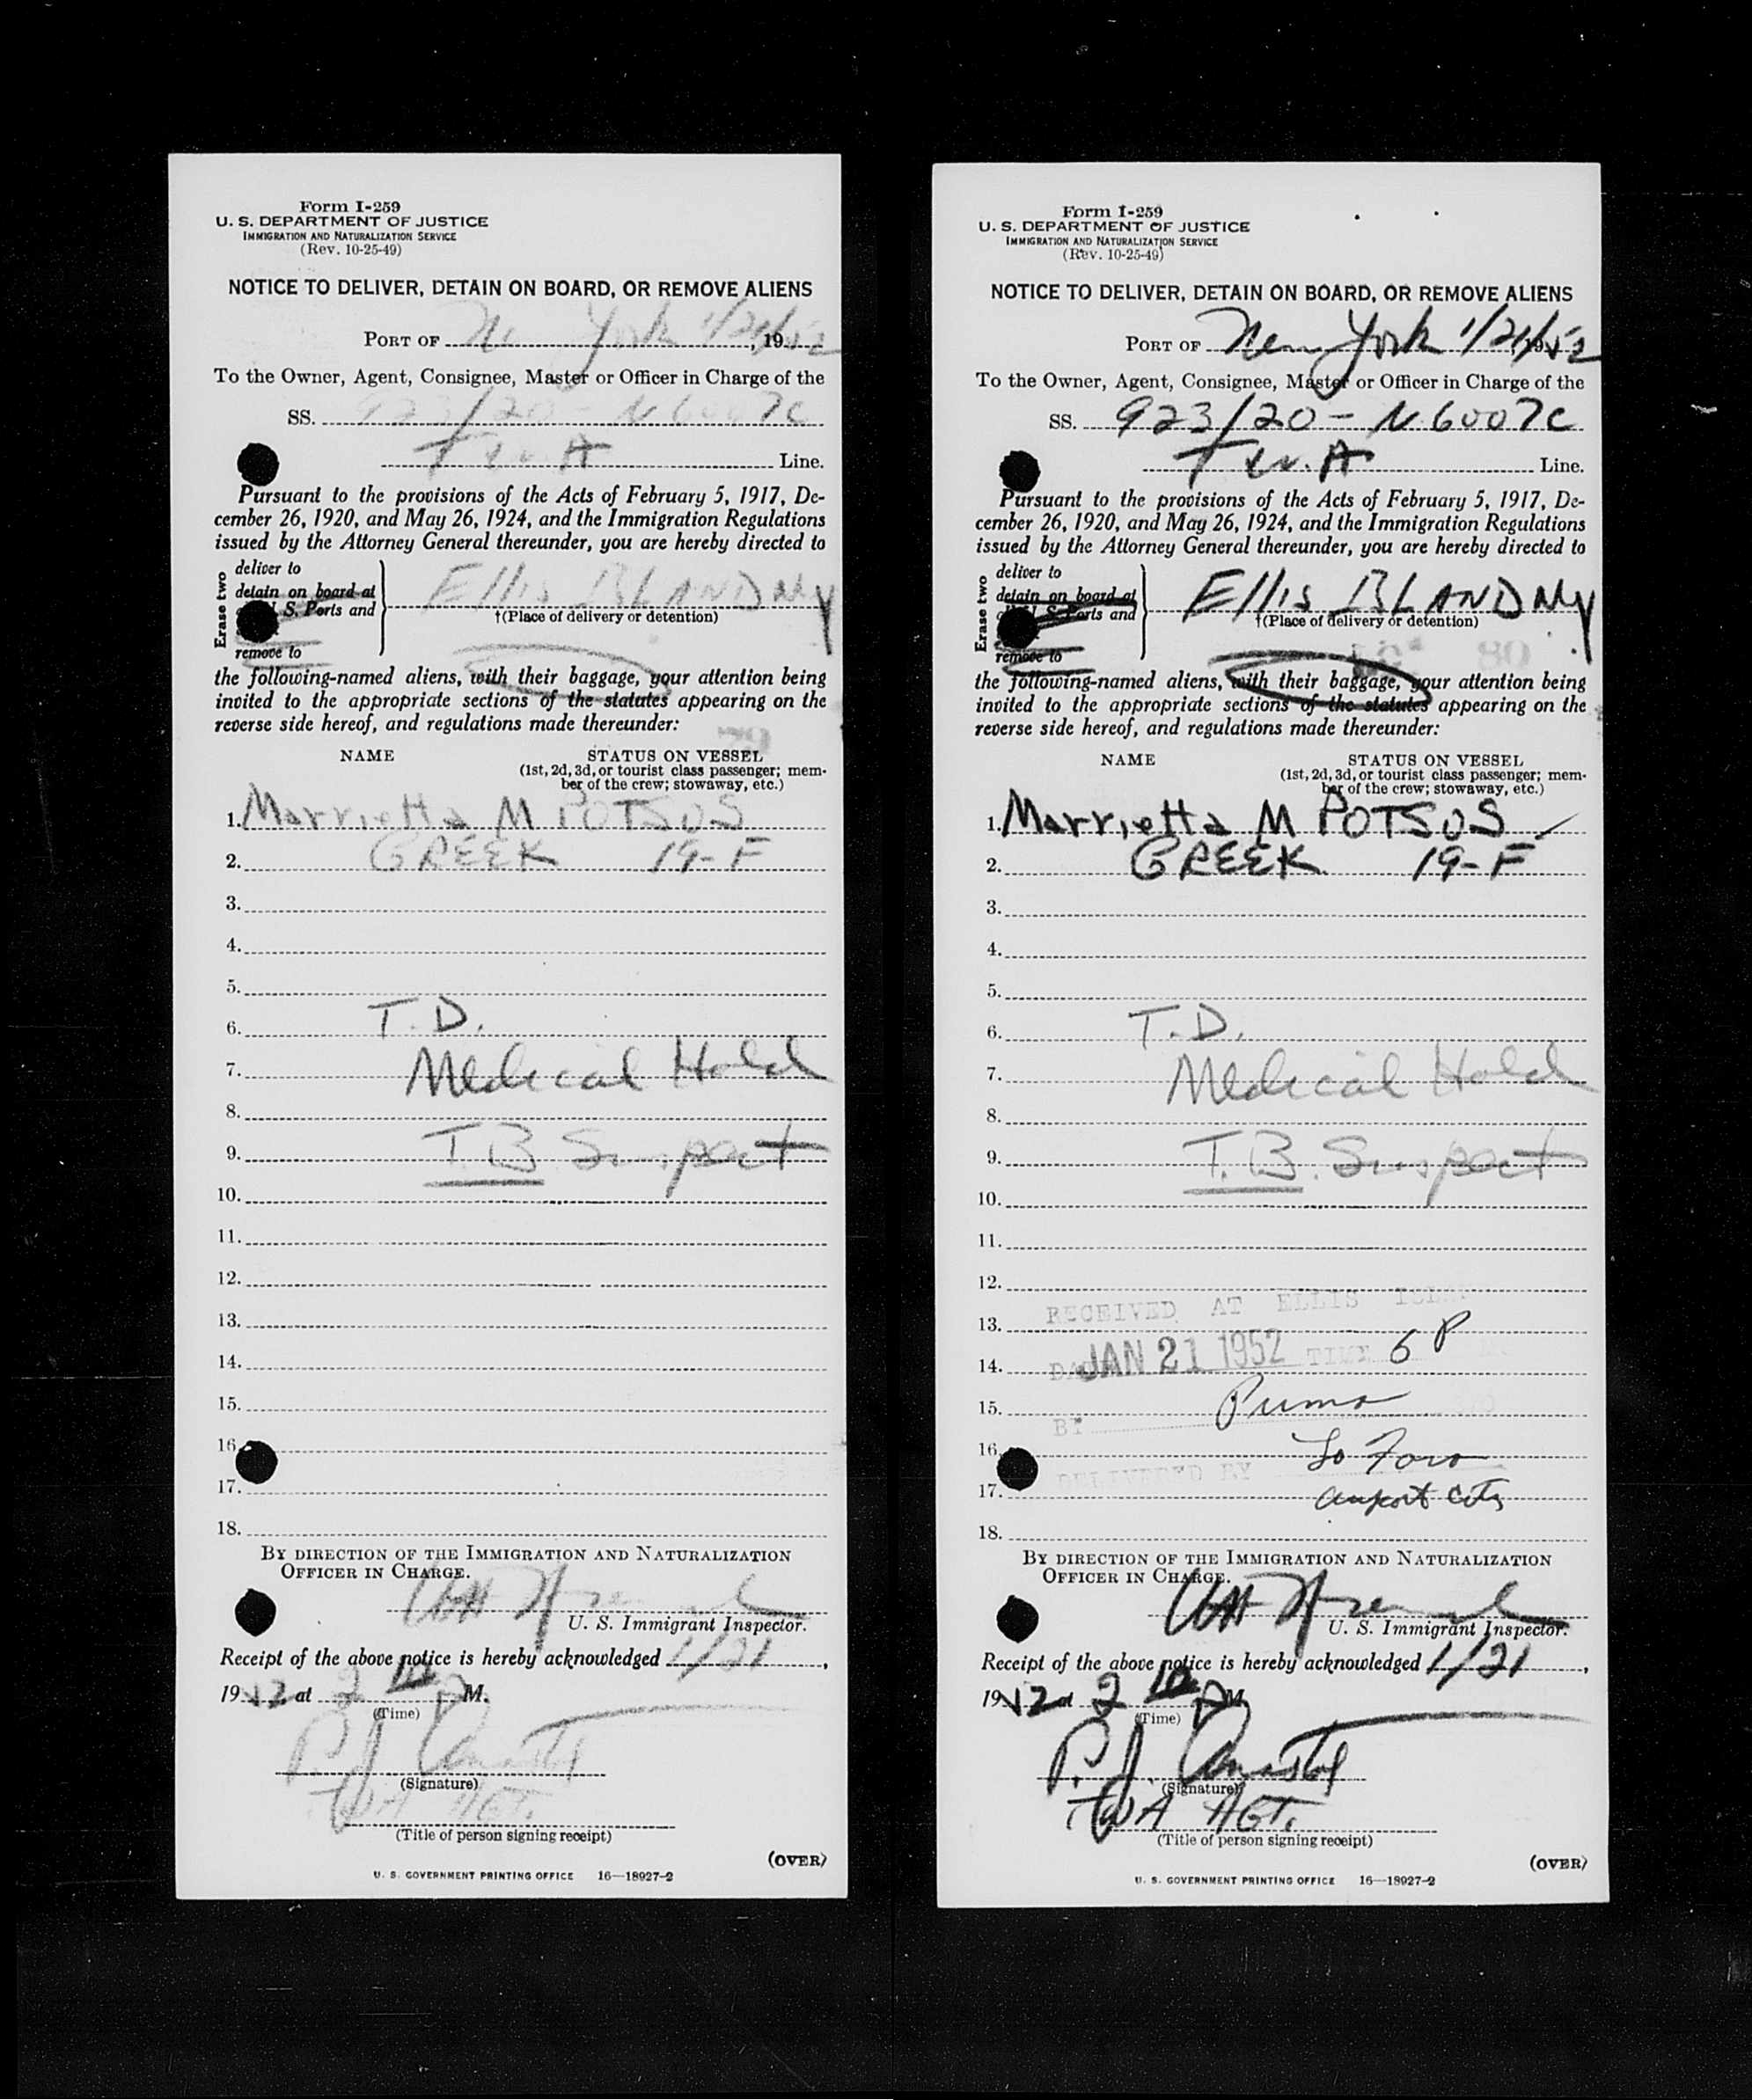 Form I-259
U. S. DEPARTMENT OF JUSTICE
IMMIGRATION AND NATURALIZATION SERVICE
(Rev. 10-25-49)
NOTICE TO DELIVER, DETAIN ON BOARD, OR REMOVE ALIENS
PORT OF New York 1/21/52, 19
To the Owner, Agent, Consignee, Master or Officer in Charge of the
SS. 923/20 - N6007C
T.W.A Line.
Pursuant to the provisions of the Acts of February 5, 1917, De-
cember 26, 1920, and May 26, 1924, and the Immigration Regulations
issued by the Attorney General thereunder, you are hereby directed to
Erase two
deliver to
detain on board at
S. Ports and
remove to
ELLIS ISLAND NY
†(Place of delivery or detention)
the following-named aliens, with their baggage, your attention being
invited to the appropriate sections of the statutes appearing on the
reverse side hereof, and regulations made thereunder:
NAME STATUS ON VESSEL
(1st, 2d, 3d, or tourist class passenger; mem-
ber of the crew; stowaway, etc.)
1. Marrietta M POTSOS
2. GREEK 19-F
3.
4.
5.
6. T.D.
7. Medical Hold
8.
9. T.B Suspect
10.
11.
12.
13.
14.
15.
16.
17.
18.
BY DIRECTION OF THE IMMIGRATION AND NATURALIZATION
OFFICER IN CHARGE.
U. S. Immigrant Inspector.
Receipt of the above notice is hereby acknowledged 1/21,
1952 at 2 10 P M.
(Time)
P. J.
(Signature)
TWA AGT.
(Title of person signing receipt)
(OVER)
U. S. GOVERNMENT PRINTING OFFICE 16—18927-2
Form I-259
U. S. DEPARTMENT OF JUSTICE
IMMIGRATION AND NATURALIZATION SERVICE
(Rev. 10-25-49)
NOTICE TO DELIVER, DETAIN ON BOARD, OR REMOVE ALIENS
PORT OF New York 1/21/52, 19
To the Owner, Agent, Consignee, Master or Officer in Charge of the
SS. 923/20 - N6007C
T.W.A Line.
Pursuant to the provisions of the Acts of February 5, 1917, De-
cember 26, 1920, and May 26, 1924, and the Immigration Regulations
issued by the Attorney General thereunder, you are hereby directed to
Erase two
deliver to
detain on board at
S. Ports and
remove to
ELLIS ISLAND NY
†(Place of delivery or detention)
the following-named aliens, with their baggage, your attention being
invited to the appropriate sections of the statutes appearing on the
reverse side hereof, and regulations made thereunder:
NAME STATUS ON VESSEL
(1st, 2d, 3d, or tourist class passenger; mem-
ber of the crew; stowaway, etc.)
1. Marrietta M POTSOS
2. GREEK 19-F
3.
4.
5.
6. T.D.
7. Medical Hold
8.
9. T.B. Suspect
10.
11.
12.
RECEIVED AT ELLIS ISLAND
13.
14. DATE JAN 21 1952 TIME 6 P
15. BY
16.
DELIVERED BY
17.
18.
BY DIRECTION OF THE IMMIGRATION AND NATURALIZATION
OFFICER IN CHARGE.
U. S. Immigrant Inspector.
Receipt of the above notice is hereby acknowledged 1/21,
1952 at 2 10 P M.
(Time)
P. J.
(Signature)
TWA AGT.
(Title of person signing receipt)
(OVER)
U. S. GOVERNMENT PRINTING OFFICE 16—18927-2